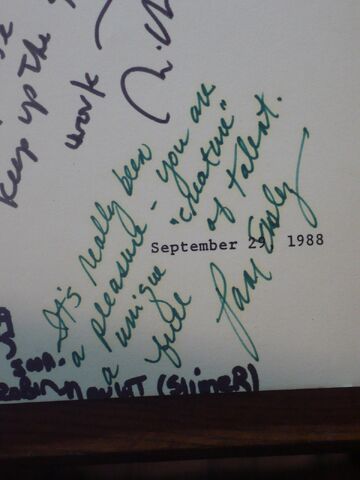 keep up the
work
It's really been
a pleasure - you are
a unique "creature"
full of talent.
September 29, 1988
(SlimeR)